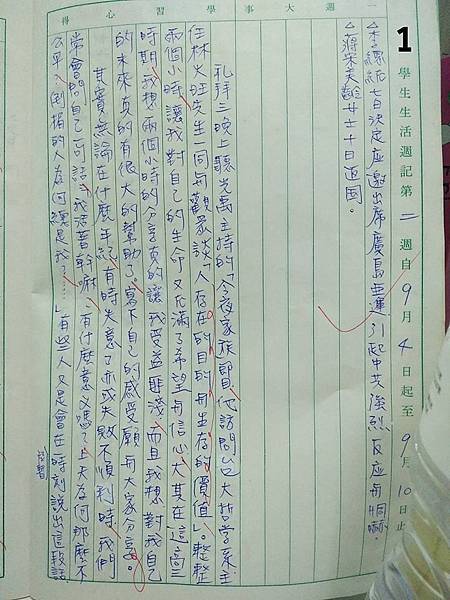 1
學生生活週記第二週自9月4日起至9月10日止
一週大事
△李總統七日決定应邀出席廣島亚運引起中共強烈反应与恫嚇。
△蔣宋美齡女士十日返国。
學習心得
礼拜三晚上聽光禹主持的「今夜家族」節目,他訪問台大哲学系主
任林火旺先生一同与觀眾談「人存在的目的与生存的價值」。整整
兩個小時讓我對自己的生命又充滿了希望与信心,尤其在這高三
時期,我想兩個小時的分享真的讓我受益匪淺,而且我想對我自己
的未來真的有很大的幫助了。寫下自己的感受願与大家分享。
其實無論在什麼年紀,有時失意了亦或失敗不順利時,我們
常會問自己一句話:「我活著幹嘛,有什麼意义嗎?上天為何那麼不
公平,倒楣的人為何總是我?……」有些人又是會在時刻說出這段話